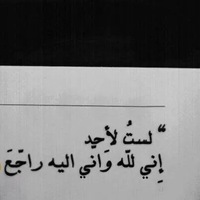 “ لستُ لأحد
إِني للّه وَاني اليه راجّعَ